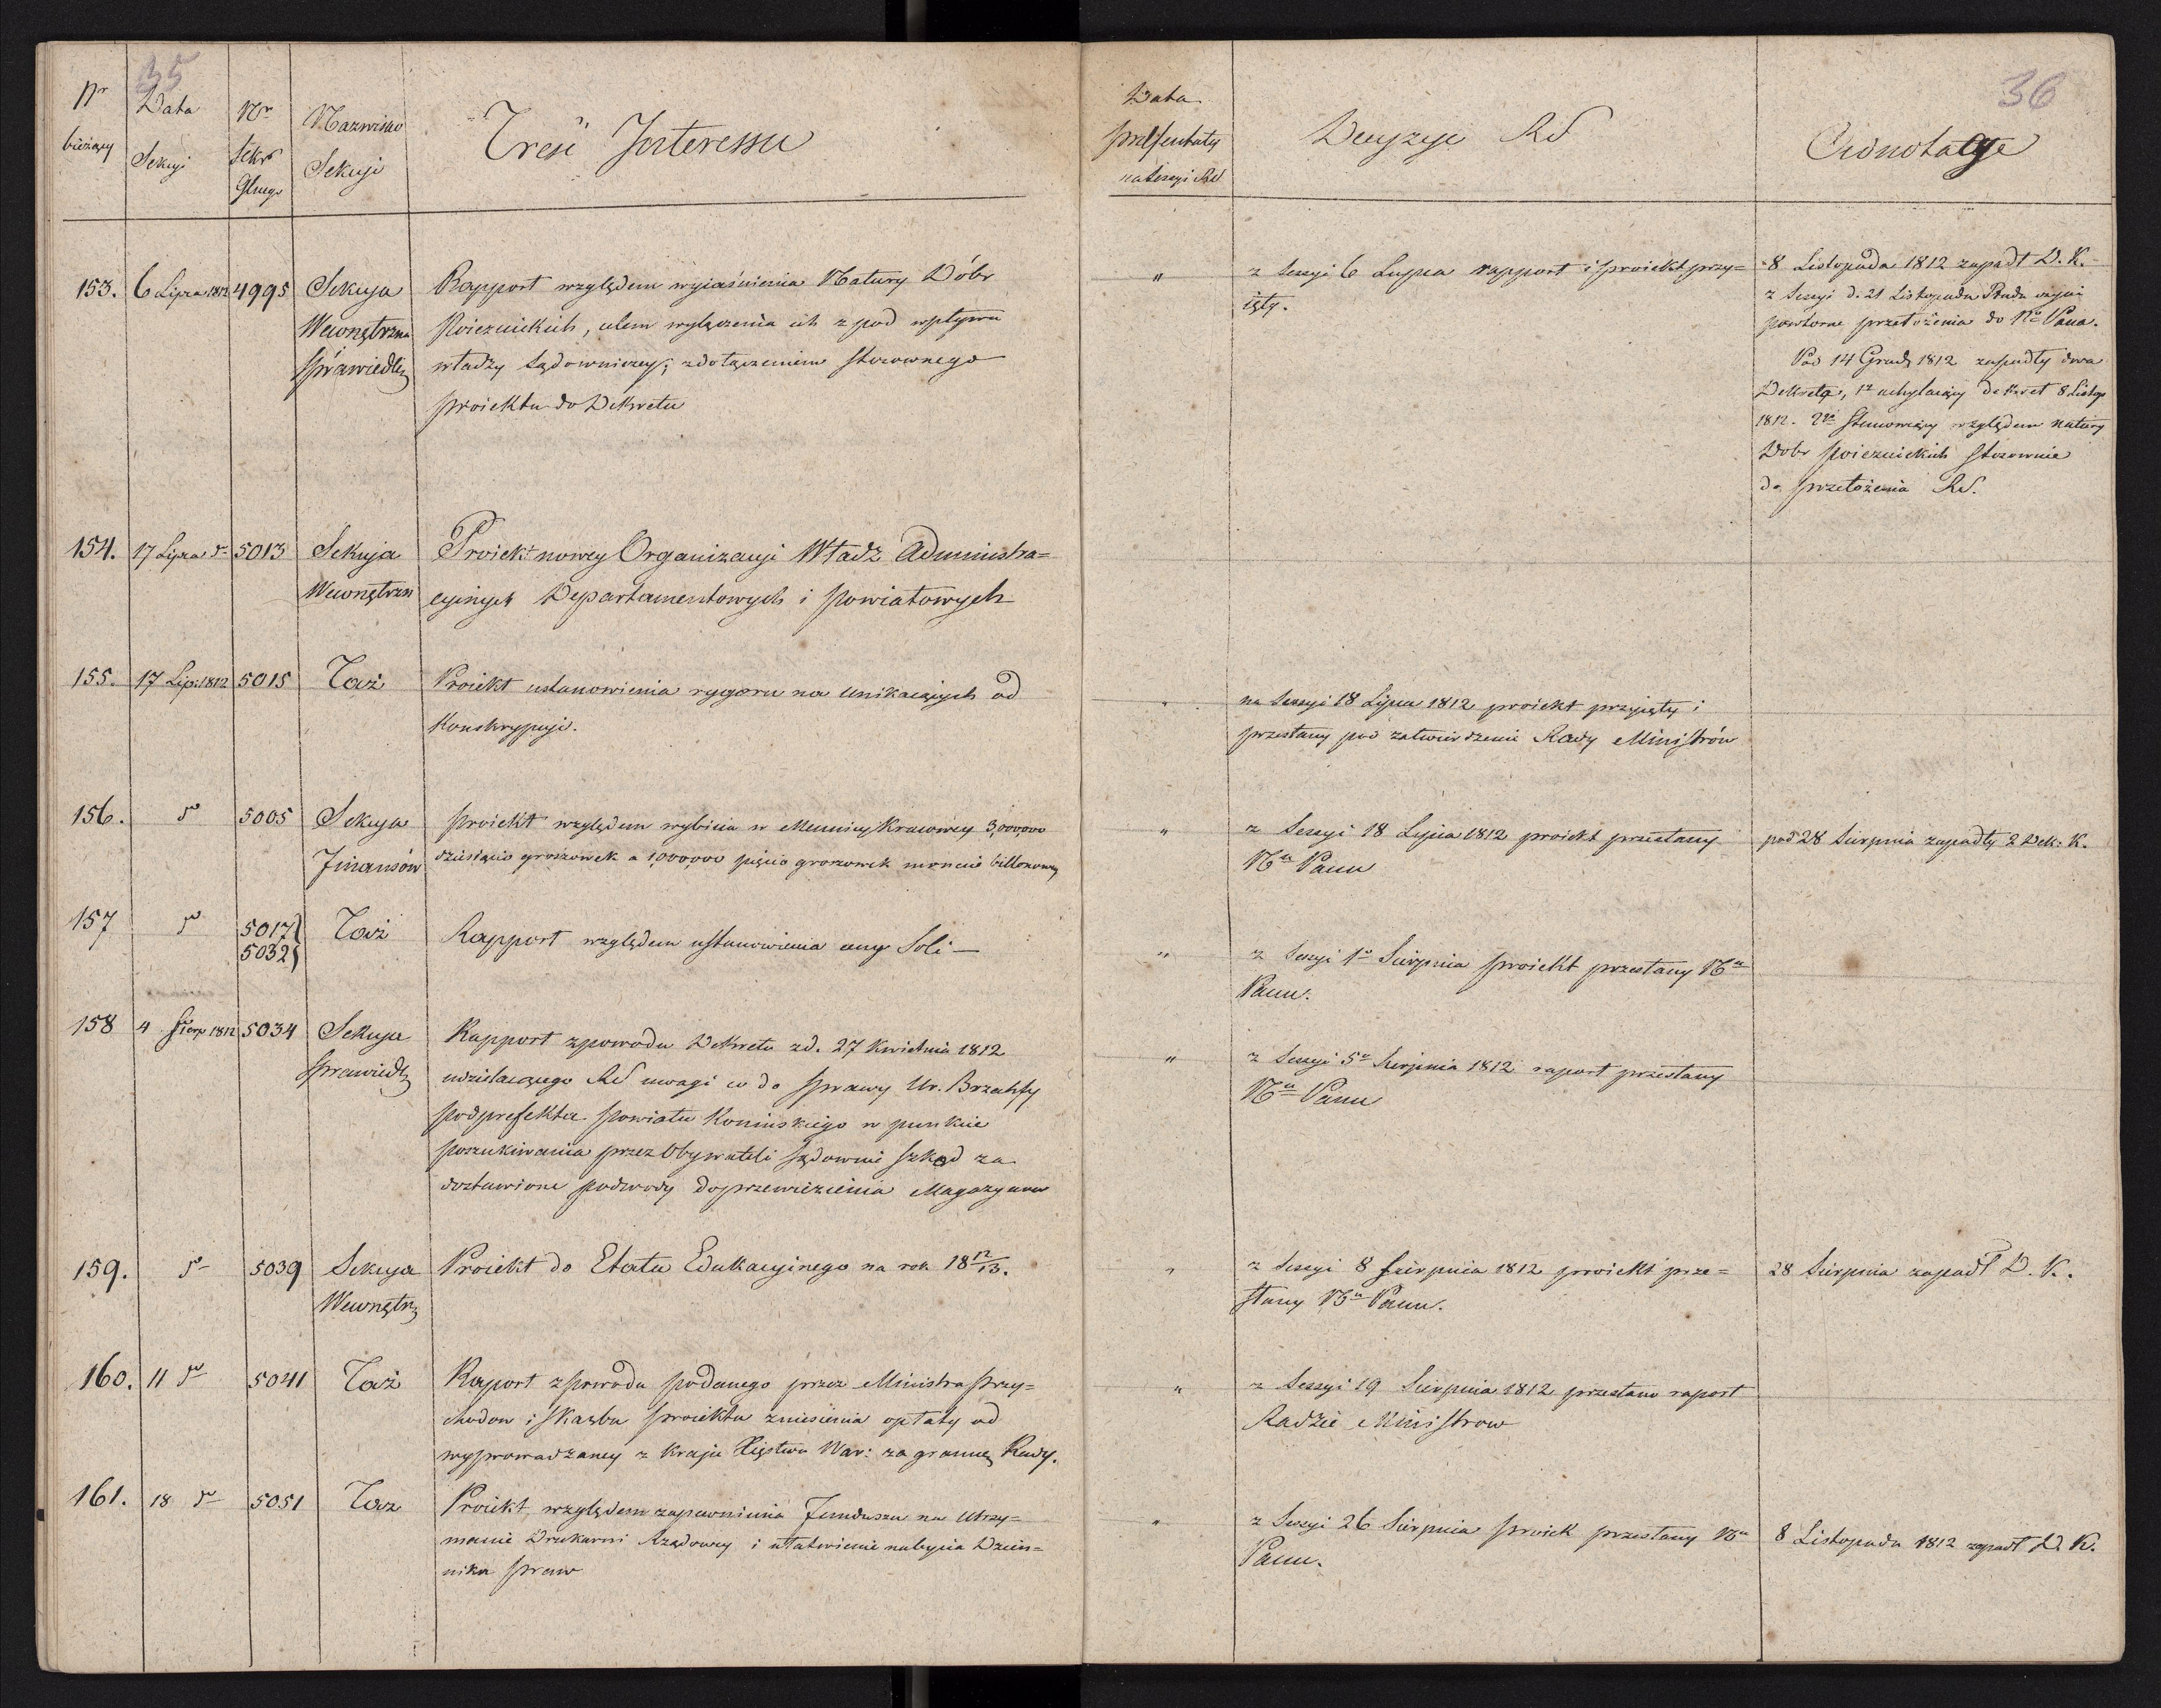 35
Nr bieżący
Data Sekcyi
Nr Sekr Glnego
Nazwisko Sekcyi
Treść Interessu
153. 6 Lipca 1812 4995 Sekcya Rapport względem wyiaśnienia Natury Dóbr
Wewnętrzna Poiezuickich, celem wyłączenia ich z pod wpływu
Sprawiedli władzy Sądowniczey; z dołączeniem stosownego
proiektu do Dekretu
154. 17 Lipca d° 5013 Sekcyja Proiekt nowey Organizacyi Władz Administra=
Wewnętrzn cyinych Departamentowych i powiatowych
155. 17 Lip: 1812 5015 Taż Proiekt ustanowienia rygoru na unikaiących od
Konskrypcyi.
156. d° 5005 Sekcya proiekt względem wybicia w Mennicy Kraiowey 3,000,000
Finansów dziesięcio groszowek a 1,000,000 pięcio groszowek monecie billonowey
157 d° 5017 Taż Rapport względem ustanowienia ceny Soli —
5032
158 4 Sierp 1812 5034 Sekcya Rapport z powodu Dekretu z d. 27 Kwietnia 1812
Sprawiedl udzielaiącego RS uwagi co do sprawy Ur. Brzechfy
podprefekta powiatu Koninskiego w punkcie
poszukiwania przez Obywateli sądownie szkod za
dostawione podwody do przewiezienia Magazynow
159. d° 5039 Sekcya Proiekt do Etatu Edukacyinego na rok 18 12/13.
Wewnętrz
160. 11 d° 5041 Taż Raport z powodu podanego przez Ministra przy=
chodow i Skarbu proiektu zniesienia opłaty od
wyprowadzaney z kraju Xięstwa War: za granicę Rudy.
161. 18 d° 5051 Taż Proiekt względem zapewnienia Funduszu na utrzy=
manie Drukarni Rządowey i ułatwienie nabycia Dzien=
nika praw
36
Data presentaty na Sessyi RS
Decyzye RS
Adnotacye
" z Sessyi 6 Lipca rapport i proiekt przy=
ięty.
8 Listopada 1812 zapadł D. K.
z Sessyi d. 21 Listopada Rada czyni
powtorne przełożenia do Nº Pana.
Pod 14 Grud 1812 zapadły dwa
Dekreta, 1º uchylaiący dekret 8 Listop
1812. 2gi Stanowiący względem natury
Dobr poiezuickich stosownie
do przełożenia RS.
" na Sessyi 18 Lipca 1812 proiekt przyięty i
przesłany pod zatwierdzenie Rady Ministrów
" z Sessyi 18 Lipca 1812 proiekt przesłany
Nu Panu
pod 28 Sierpnia zapadły 2 Dek: K.
" z Sessyi 1º Sierpnia proiekt przesłany Nu
Panu.
" z Sessyi 5º Sierpnia 1812 raport przesłany
Nu Panu
" z Sessyi 8 Sierpnia 1812 proiekt prze=
słany Nu Panu.
28 Sierpnia zapadł D. K.
" z Sessyi 19 Sierpnia 1812 przesłano raport
Radzie Ministrow
" z Sessyi 26 Sierpnia proiek przesłany Nu
Panu.
8 Listopada 1812 zapadł D. K.